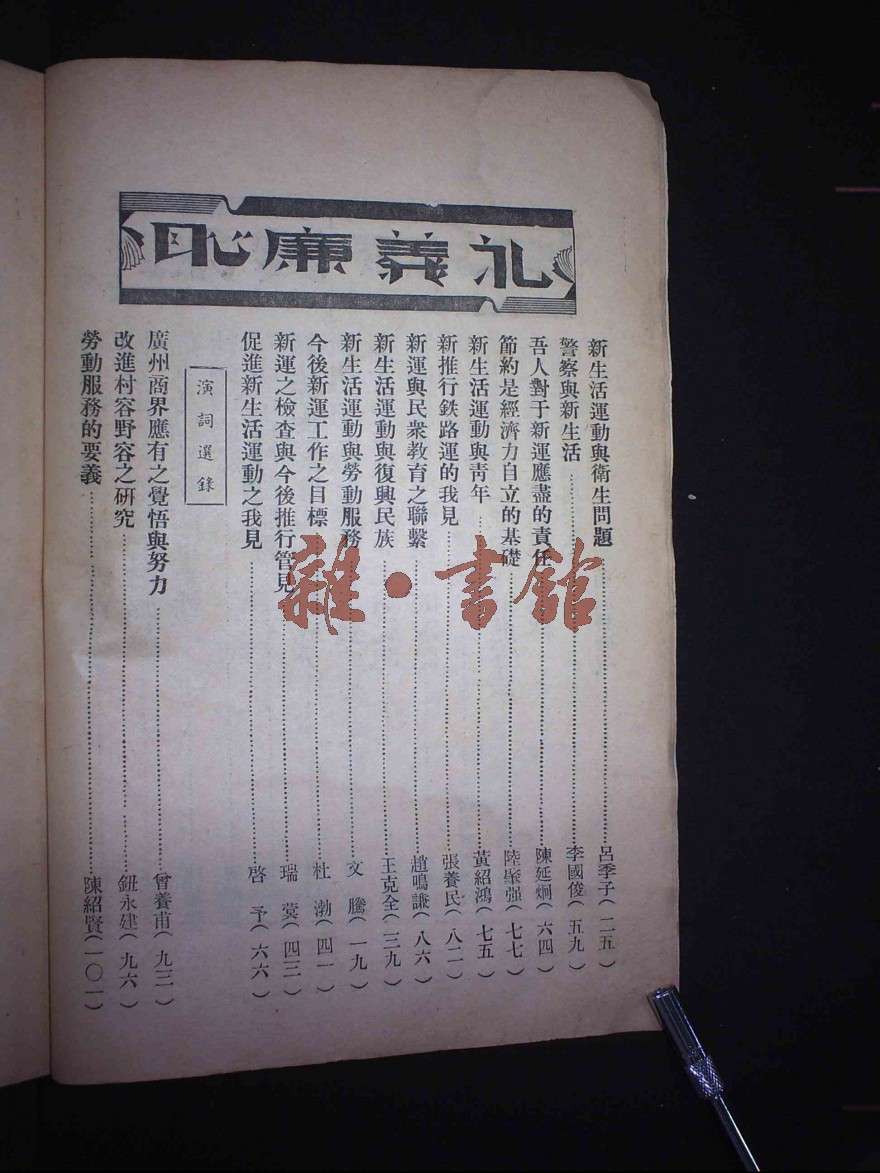 礼義廉恥
新生活運動與衛生問題……呂季子(二五)
警察與新生活……李國俊(五九)
吾人對于新運應盡的責任……陳延炯(六四)
節約是經濟力自立的基礎……陸聚强(七七)
新生活運動與靑年……黃紹鴻(七五)
新推行鉄路運的我見……張養民(八二)
新運與民衆教育之聯繫……趙鳴謙(八六)
新生活運動與復興民族……王克全(三九)
新生活運動與勞動服務……文騰(一九)
今後新運工作之目標……杜渤(四一)
新運之檢查與今後推行管見……瑞蓂(四三)
促進新生活運動之我見……啓予(六六)
演詞選錄
廣州商界應有之覺悟與努力……曾養甫(九三)
改進村容野容之研究……鈕永建(九六)
勞動服務的要義……陳紹賢(一〇一)
雜·書館